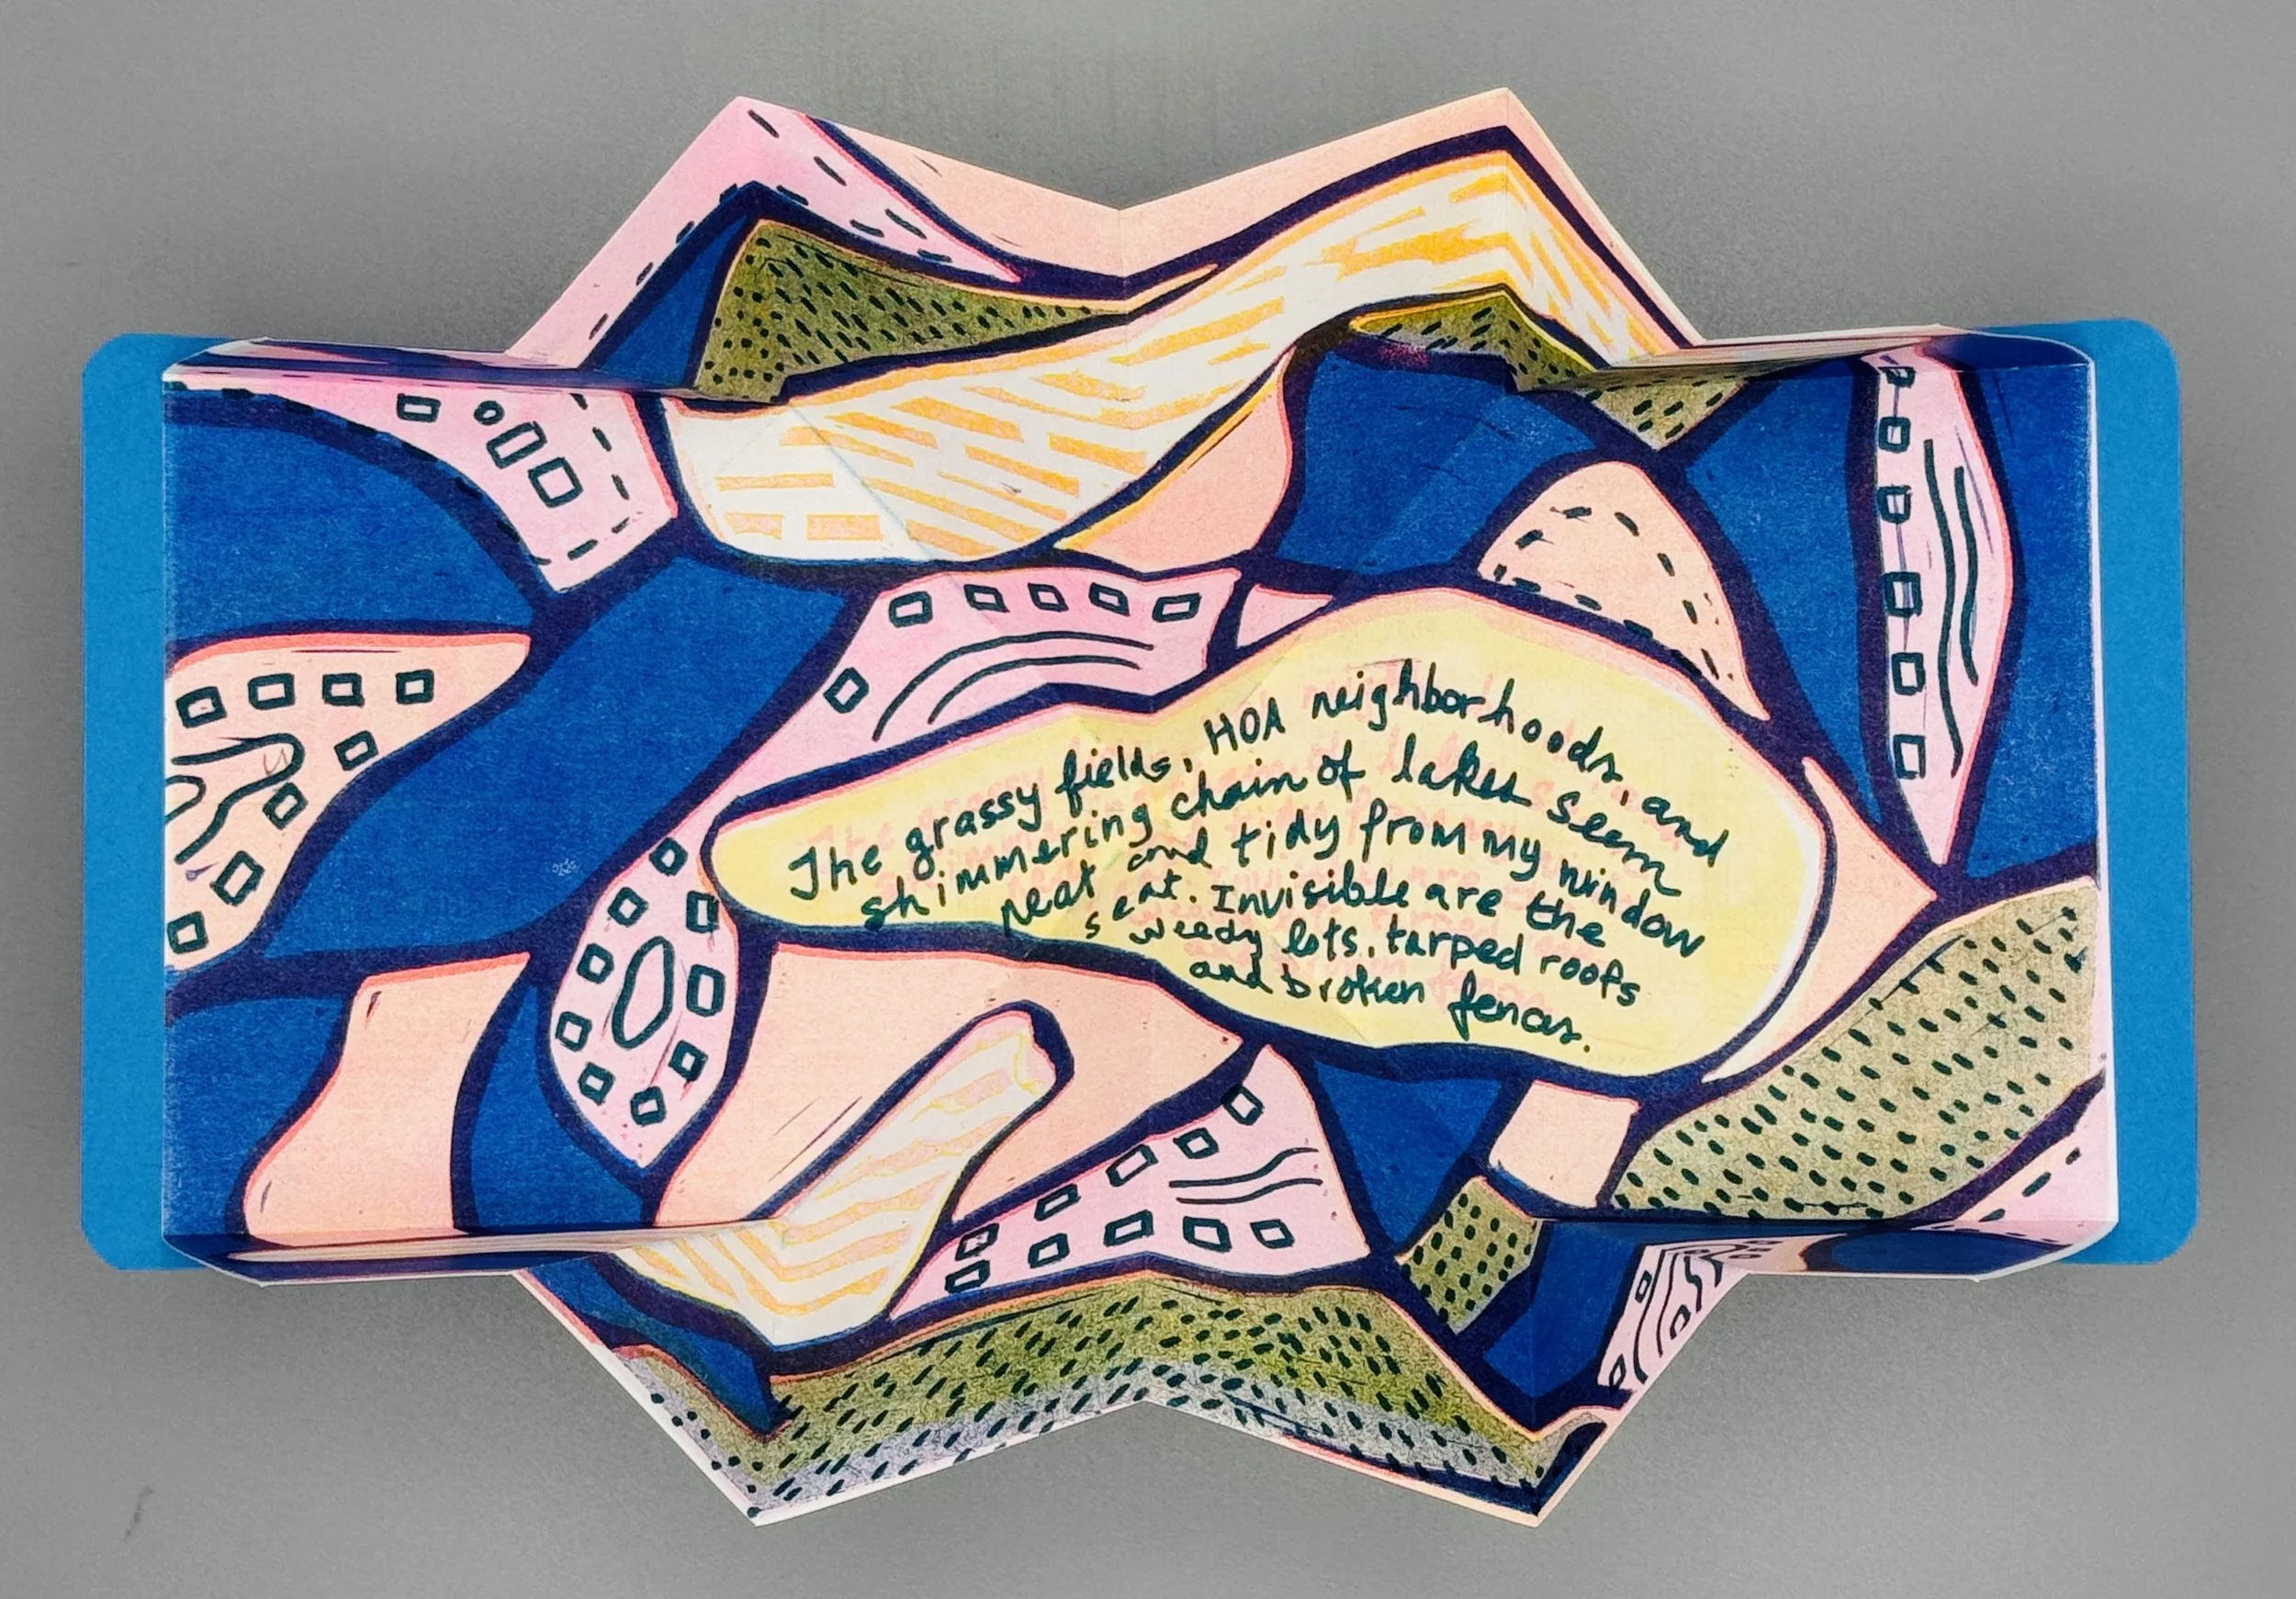 The grassy fields, HOA neighborhoods, and
shimmering chain of lakes seem
neat and tidy from my window
seat. Invisible are the
weedy lots, tarped roofs
and broken fences.